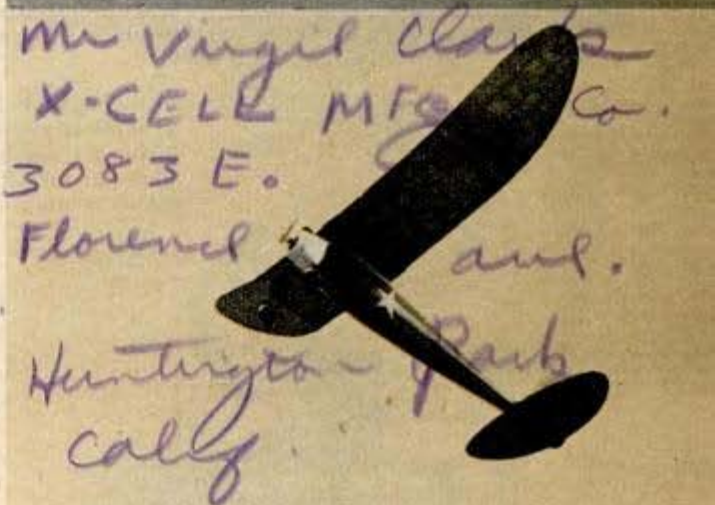 Mr Virgil Clark
X-CELL Mfg Co.
3083 E.
Florence ave.
Huntington Park
Calif